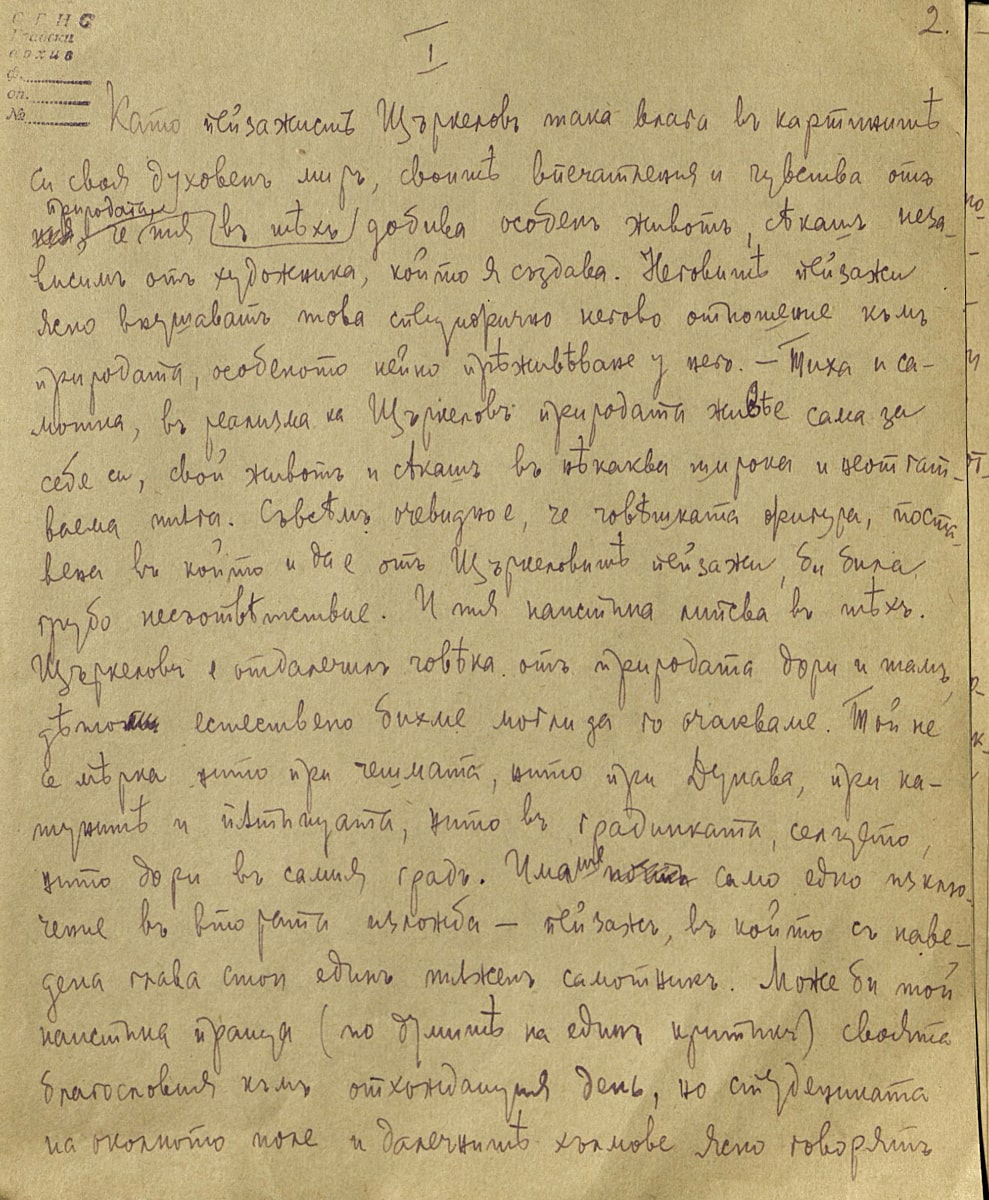 С Г Н С
Градски
архив
ф.
оп.
№
2.
I
Като пейзажистъ Щъркеловъ така влага въ картинитѣ
си своя духовенъ миръ, своитѣ впечатления и чувства отъ
природата,
че тя въ тѣхъ добива особенъ животъ, сѣкашъ неза-
висимъ отъ художника, който я създава. Неговитѣ пейзажи
ясно внушаватъ това специфично негово отношение къмъ
природата, особеното нейно прѣживѣване у него. — Тиха и са-
мотна, въ реализма на Щъркеловъ природата живѣе сама за
себе си, свой животъ и сѣкашъ въ нѣкаква широка и неотгат-
ваема мисъл. Съвсѣмъ очевидно е, че човѣшката фигура, поста-
вена въ който и да е отъ Щъркеловитѣ пейзажи, би била
грубо несъотвѣтствие. И тя наистина липсва въ тѣхъ.
Щъркеловъ е отдалечилъ човѣка отъ природата дори и тамъ,
дѣто естествено бихме могли да го очакваме. Той не
се мѣрка нито при чешмата, нито при Дунава, при ка-
тунитѣ и пѫтищата, нито въ градинката, селцето,
нито дори въ самия градъ. Имаше само едно изклю-
чение въ втората изложба — пейзажъ, въ който съ наве-
дена глава стои единъ тѫженъ самотникъ. Може би той
наистина праща (по думитѣ на единъ критикъ) своята
благословия къмъ отхождащия день, но студенината
на околното поле и далечнитѣ хълмове ясно говорятъ